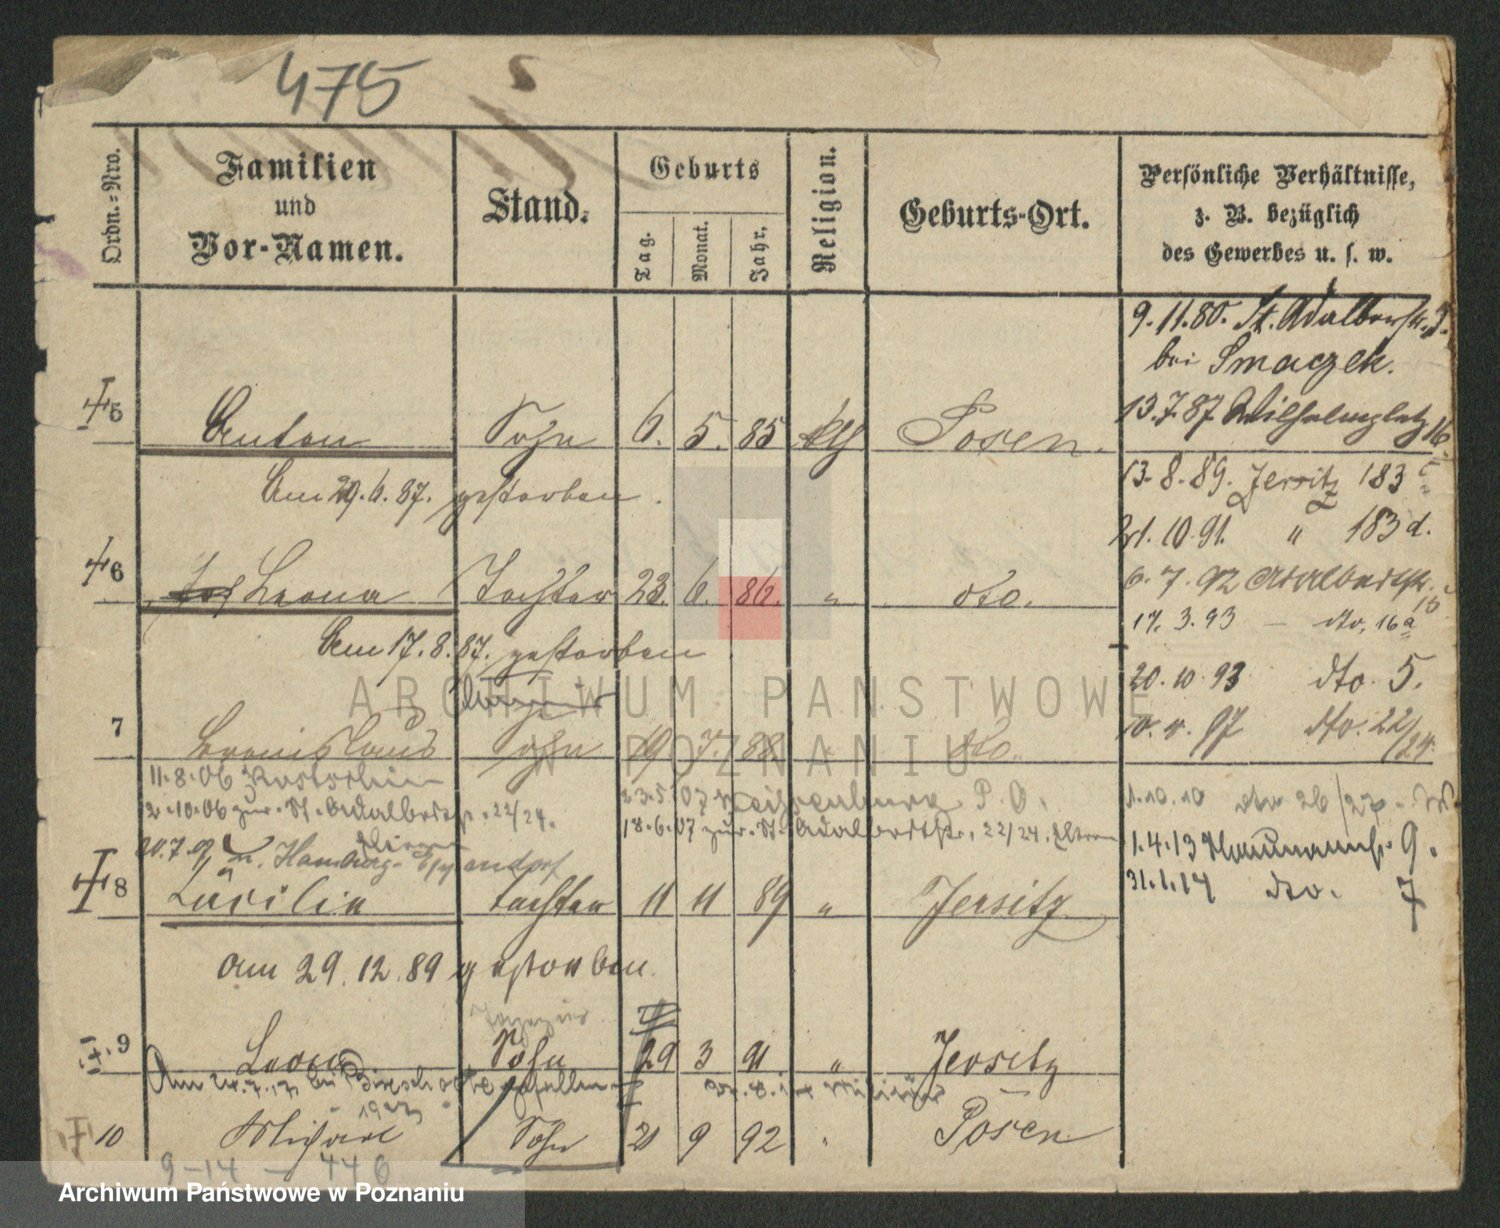 475
Ordn.-Nro.
Familien
und
Vor-Namen.
Stand.
Geburts
Tag.
Monat.
Jahr.
Religion.
Geburts-Ort.
Persönliche Verhältnisse,
z. B. bezüglich
des Gewerbes u. s. w.
9.11.80. St. Adalbertstr. 3.
bei Smaczek.
5 Anton Sohn 6. 5. 85 kth Posen.
13.7.87 Wilhelmsplatz 16
Am 29.6.87. gestorben.
13.8.89. Jersitz 183
21.10.91. " 183 d.
6 Leona Tochter 23. 6. 86. " dto.
6.7.92 Adalbertstr.
17.3.93 — dto. 16a
Am 17.8.87. gestorben
20.10.93 dto. 5.
7 Bronislaus Sohn 19 7. 88 " dto.
97 dto. 22/24.
11.8.06
2.10.06 zur. St. Adalbertstr. 22/24.
23.5.07 P. O.
18.6.07 zur. St. Adalbertstr. 22/24. Eltern
1.10.10 dto 26/27
20.7.09 n. Hamburg-
1.4.13 9.
31.1.14 dto. 7
8 Cäcilie Tochter 11 11 89 " Jersitz
am 29.12.89 gestorben.
9 Leon Sohn 29 3 91 " Jersitz
Am bei gefallen
10 Michael Sohn 21 9 92 " Posen
9-14 — 446
ARCHIWUM PAŃSTWOWE
W POZNANIU
Archiwum Państwowe w Poznaniu